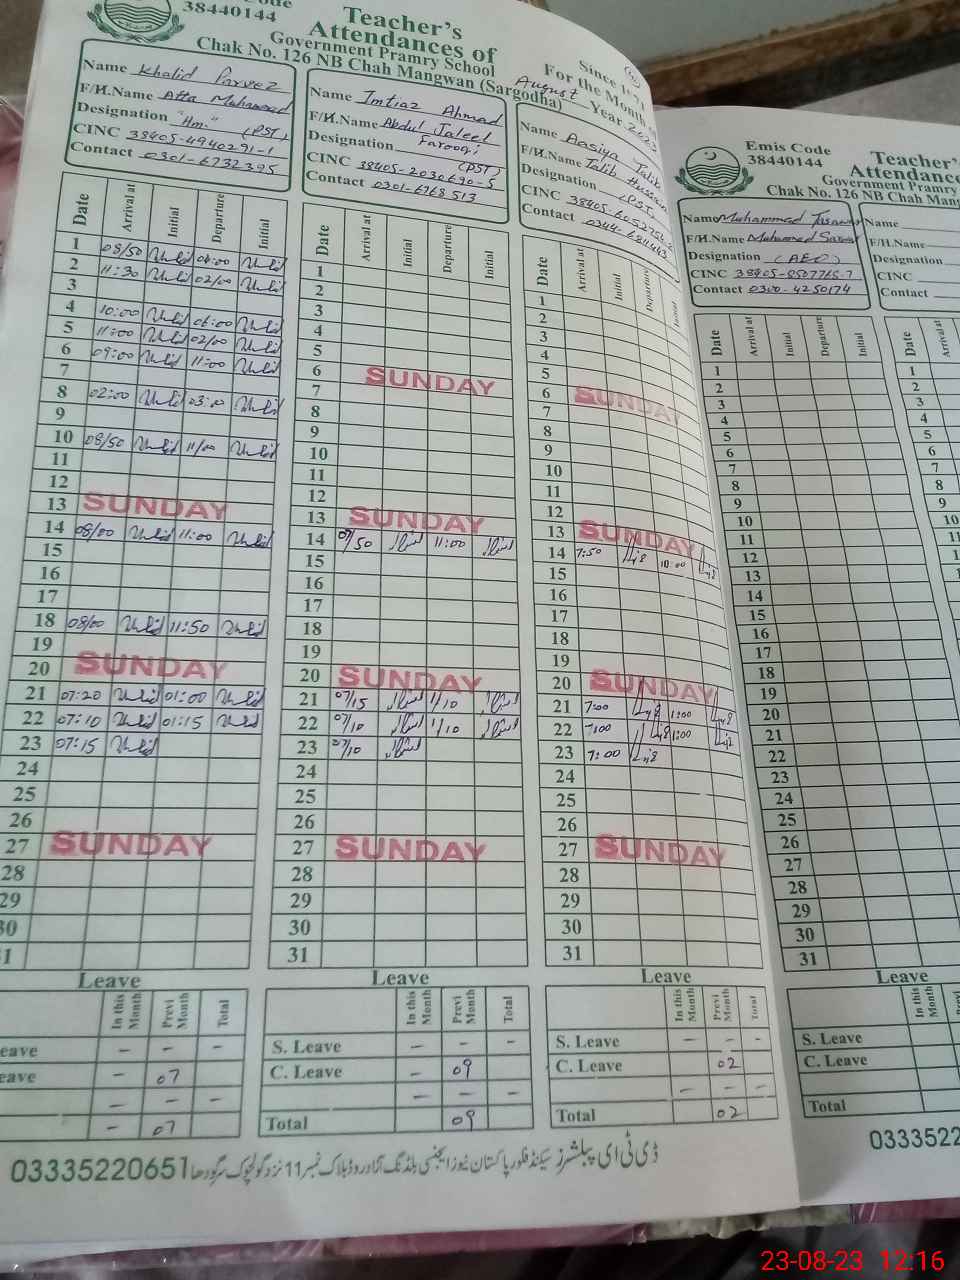 Code
38440144
Teacher's
Attendances of
Government Pramry School
Chak No. 126 NB Chah Mangwan (Sargodha)
Since 1971
For the Month of
August Year 2023
Name Khalid Parvez
F/H.Name Atta Muhammad
Designation "Hm." (PST)
CINC 38405-4940291-1
Contact 0301-6732395
Name Imtiaz Ahmad
F/H.Name Abdul Jaleel
Farooqi
Designation (PST)
CINC 38405-2030690-5
Contact 0301-6768513
Name Aasiya Talib
F/H.Name Talib Hussain
Designation (PST)
CINC
Contact
Date Arrival at Initial Departure Initial
1 08/50 06:00
2 11:30 02/00
3
4 10:00 06:00
5 11:00 02/00
6 09:00 11:00
7
8 02:00 03:00
9
10 08/50 11/00
11
12
13 SUNDAY
14 08/00 11:00
15
16
17
18 08/00 11:50
19
20 SUNDAY
21 07:20 01:00
22 07:10 01:15
23 07:15
24
25
26
27 SUNDAY
28
29
30
31
Date Arrival at Initial Departure Initial
1
2
3
4
5
6 SUNDAY
7
8
9
10
11
12
13 SUNDAY
14 07/50 11:00
15
16
17
18
19
20 SUNDAY
21 07/15 1/10
22 07/10 1/10
23 07/10
24
25
26
27 SUNDAY
28
29
30
31
Date Arrival at Initial Departure Initial
1
2
3
4
5
6 SUNDAY
7
8
9
10
11
12
13 SUNDAY
14 7:50 10:00
15
16
17
18
19
20 SUNDAY
21 7:00 1:00
22 7:00 1:00
23 7:00
24
25
26
27 SUNDAY
28
29
30
31
Leave
In this Month Previ Month Total
eave - - -
eave - 07
- -
- 07
Leave
In this Month Previ Month Total
S. Leave - - -
C. Leave - 09
- - -
Total 09
Leave
In this Month Previ Month Total
S. Leave - - -
C. Leave 02
- - -
Total 02
03335220651 ڈی ٹی ای پبلشرز سیکنڈ فلور پاکستان نیوز ایجنسی بلڈنگ آزاد روڈ بلاک نمبر 11 نزد گول چوک سرگودھا
Emis Code
38440144
Teacher'
Attendanc
Government Pramry
Chak No. 126 NB Chah Mang
Name Muhammad
F/H.Name Muhammad
Designation (AEO)
CINC 38405-8507765-7
Contact 0300-4250174
Name
F/H.Name
Designation
CINC
Contact
Date Arrival at Initial Departure Initial
1
2
3
4
5
6
7
8
9
10
11
12
13
14
15
16
17
18
19
20
21
22
23
24
25
26
27
28
29
30
31
Date Arrival at
1
2
3
4
5
6
7
8
9
10
11
12
13
Leave
In this Month Previ
S. Leave
C. Leave
Total
0333522
23-08-23 12:16